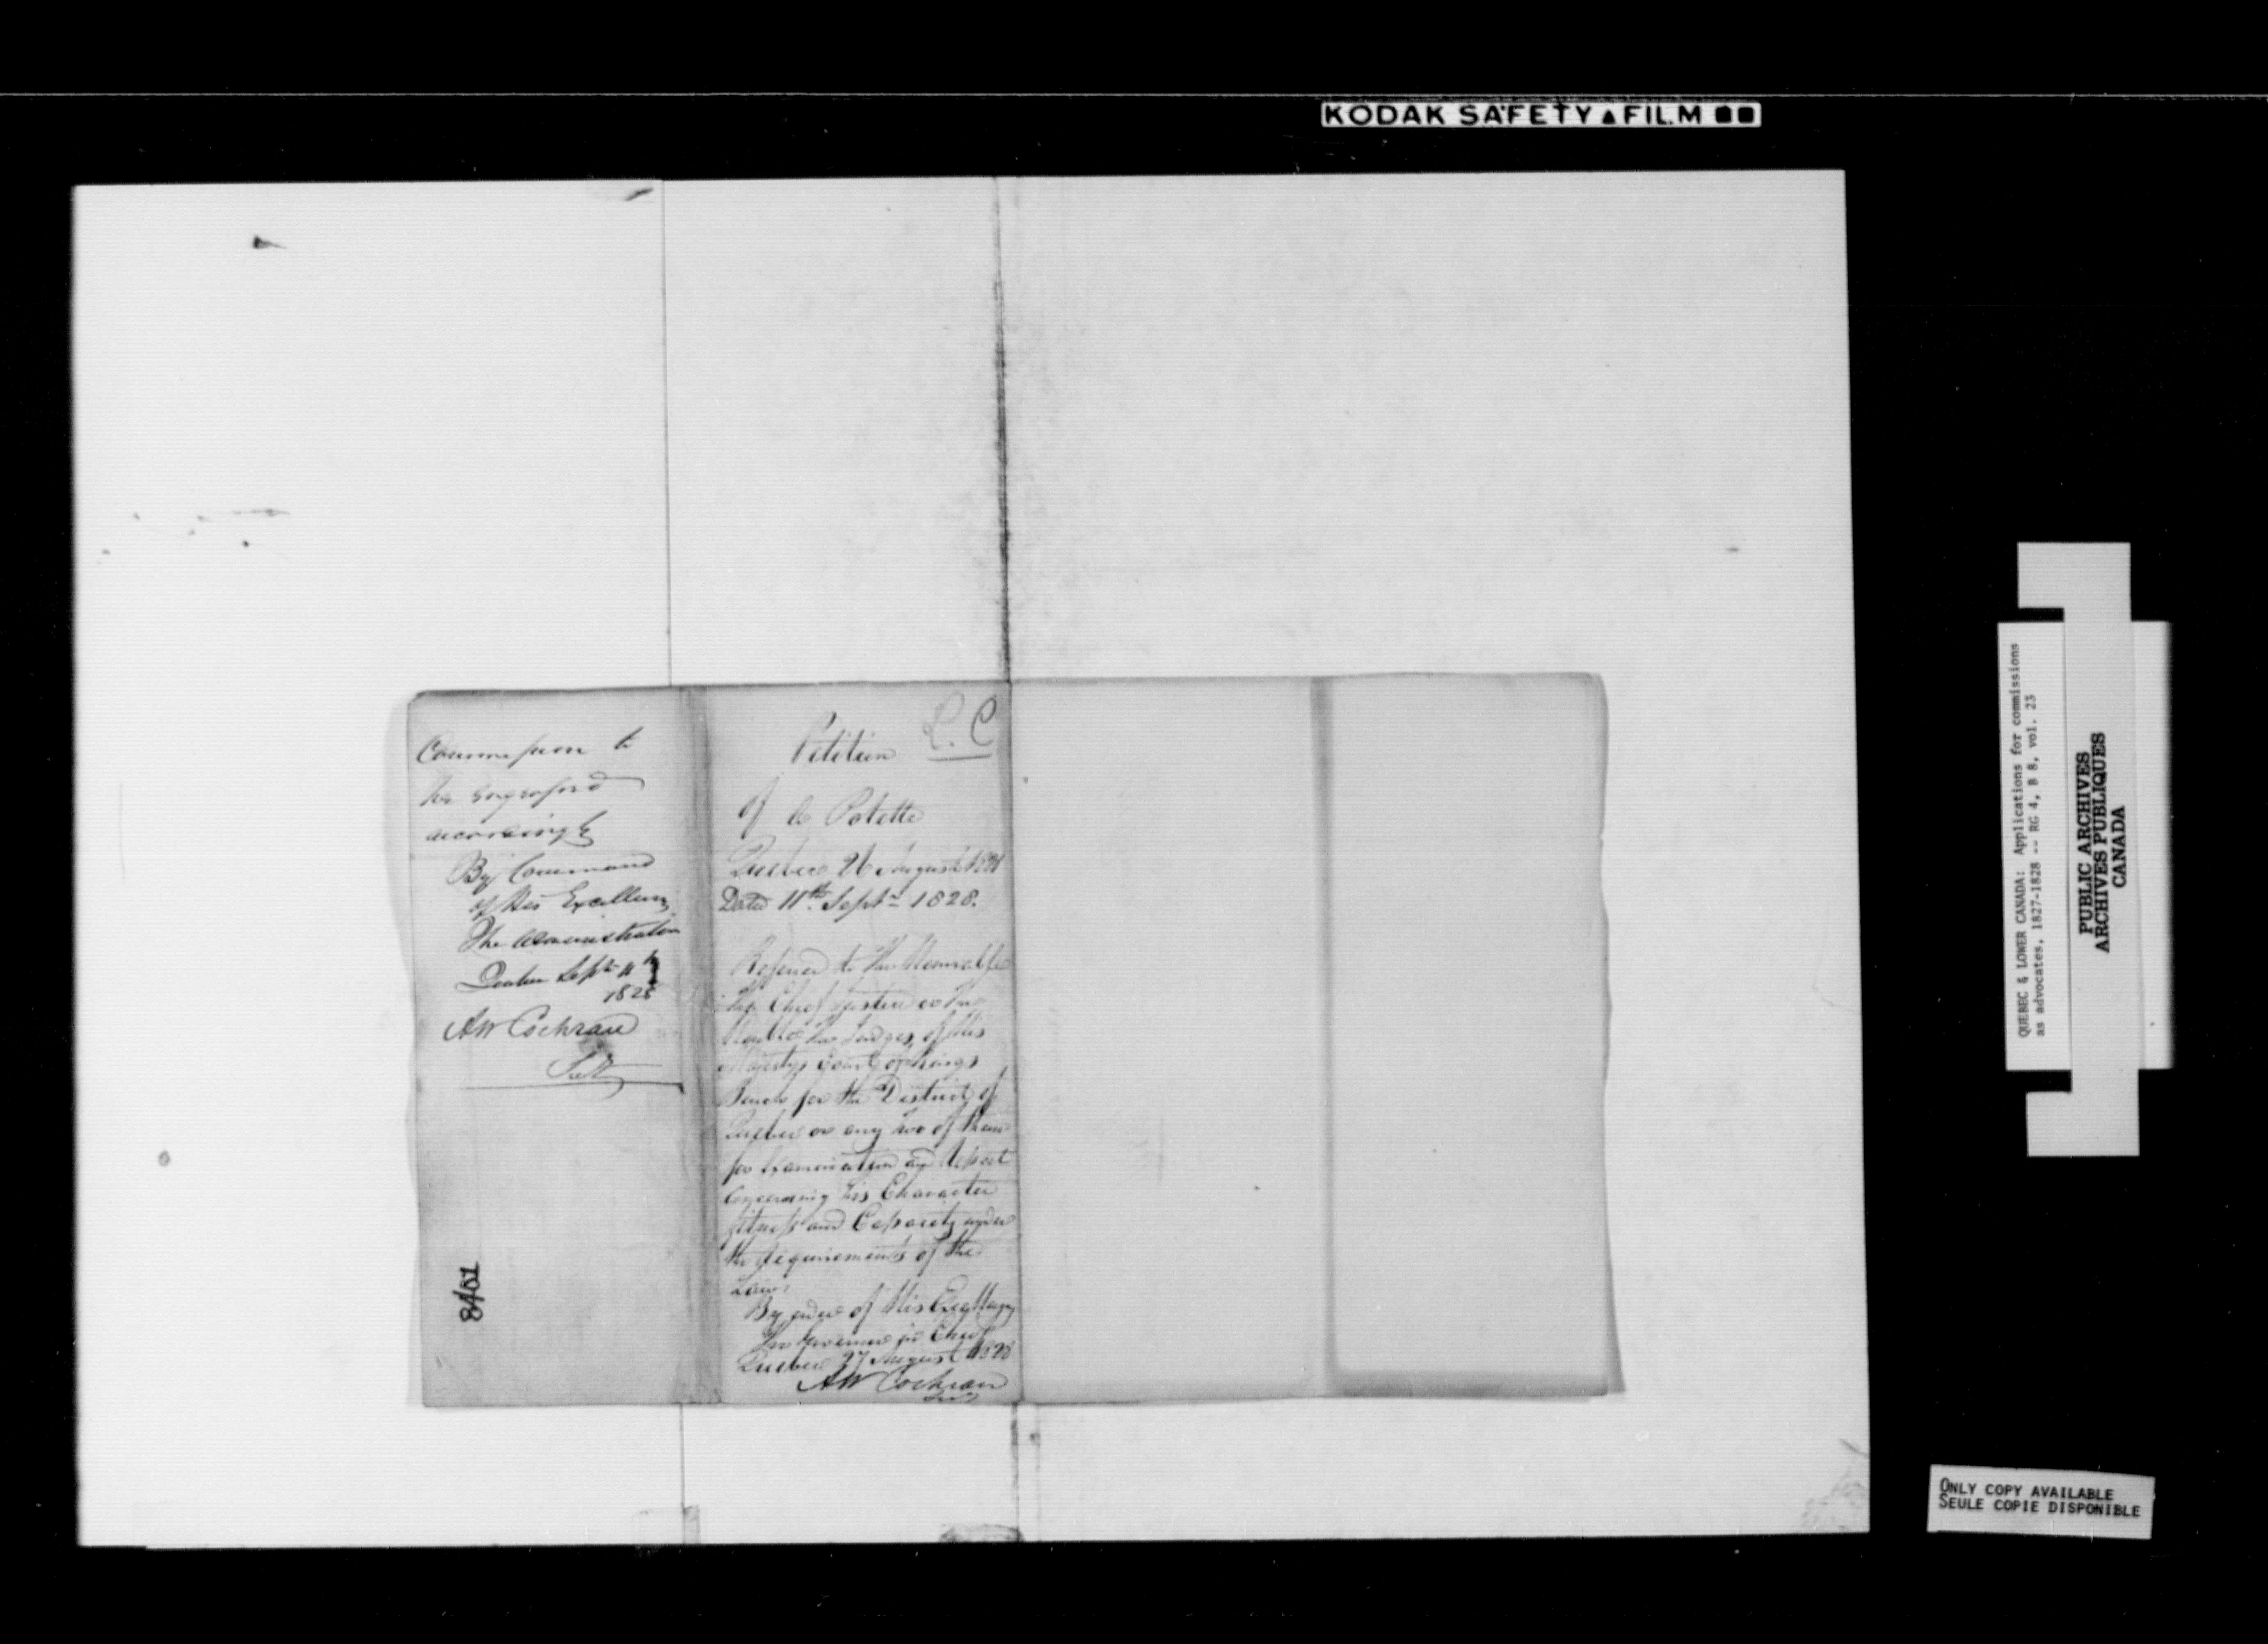 KODAK SAFETY FILM
Commission to
be engrossed
accordingly
By Command
of His Excellency
The Administrator
Quebec Septr 11th
1828
AW Cochran
Secy
8401
L. C
Petition
of
Quebec 26 August 1828
Dated 11th. Septr 1828.
Referred to the Honorable
the Chief Justice & the
Honble the Judges of His
Majestys Court of Kings
Bench for the District of
Quebec or any two of them
for Examination and Report
concerning his Character
fitness and Capacity under
the requirements of the
Law.
By order of His Excellency
the Governor in Chief
Quebec 27 August 1828
AW Cochran
Secy
QUEBEC & LOWER CANADA: Applications for commissions
as advocates, 1827-1828 -- RG 4, B 8, vol. 23
PUBLIC ARCHIVES
ARCHIVES PUBLIQUES
CANADA
ONLY COPY AVAILABLE
SEULE COPIE DISPONIBLE